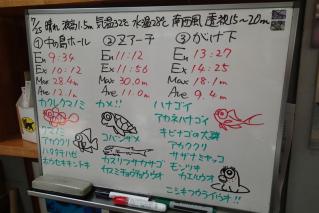 7/25 晴れ 波高1.5m 気温32℃ 水温28℃ 南西風 透視15～20m
①中の島ホール
En 9:34
Ex 10:12
Max 28.4m
Ave 12.1m
カクレクマノミ
クマノミ
アカククリ
ハタタテハゼ
ホウセキキントキ
②Zアーチ
En 11:12
Ex 11:56
Max 30.0m
Ave 11.0m
カメ!!
コバンザメ
カスリフサカサゴ
カスミチョウチョウウオ
③がけ下
En 13:27
Ex 14:25
Max 18.1m
Ave 9.4m
ハナゴイ
アカネハナゴイ
キビナゴの大群
アカククリ
サザナミヤッコ
モンツキ
カエルウオ
ニシキフウライウオ!!